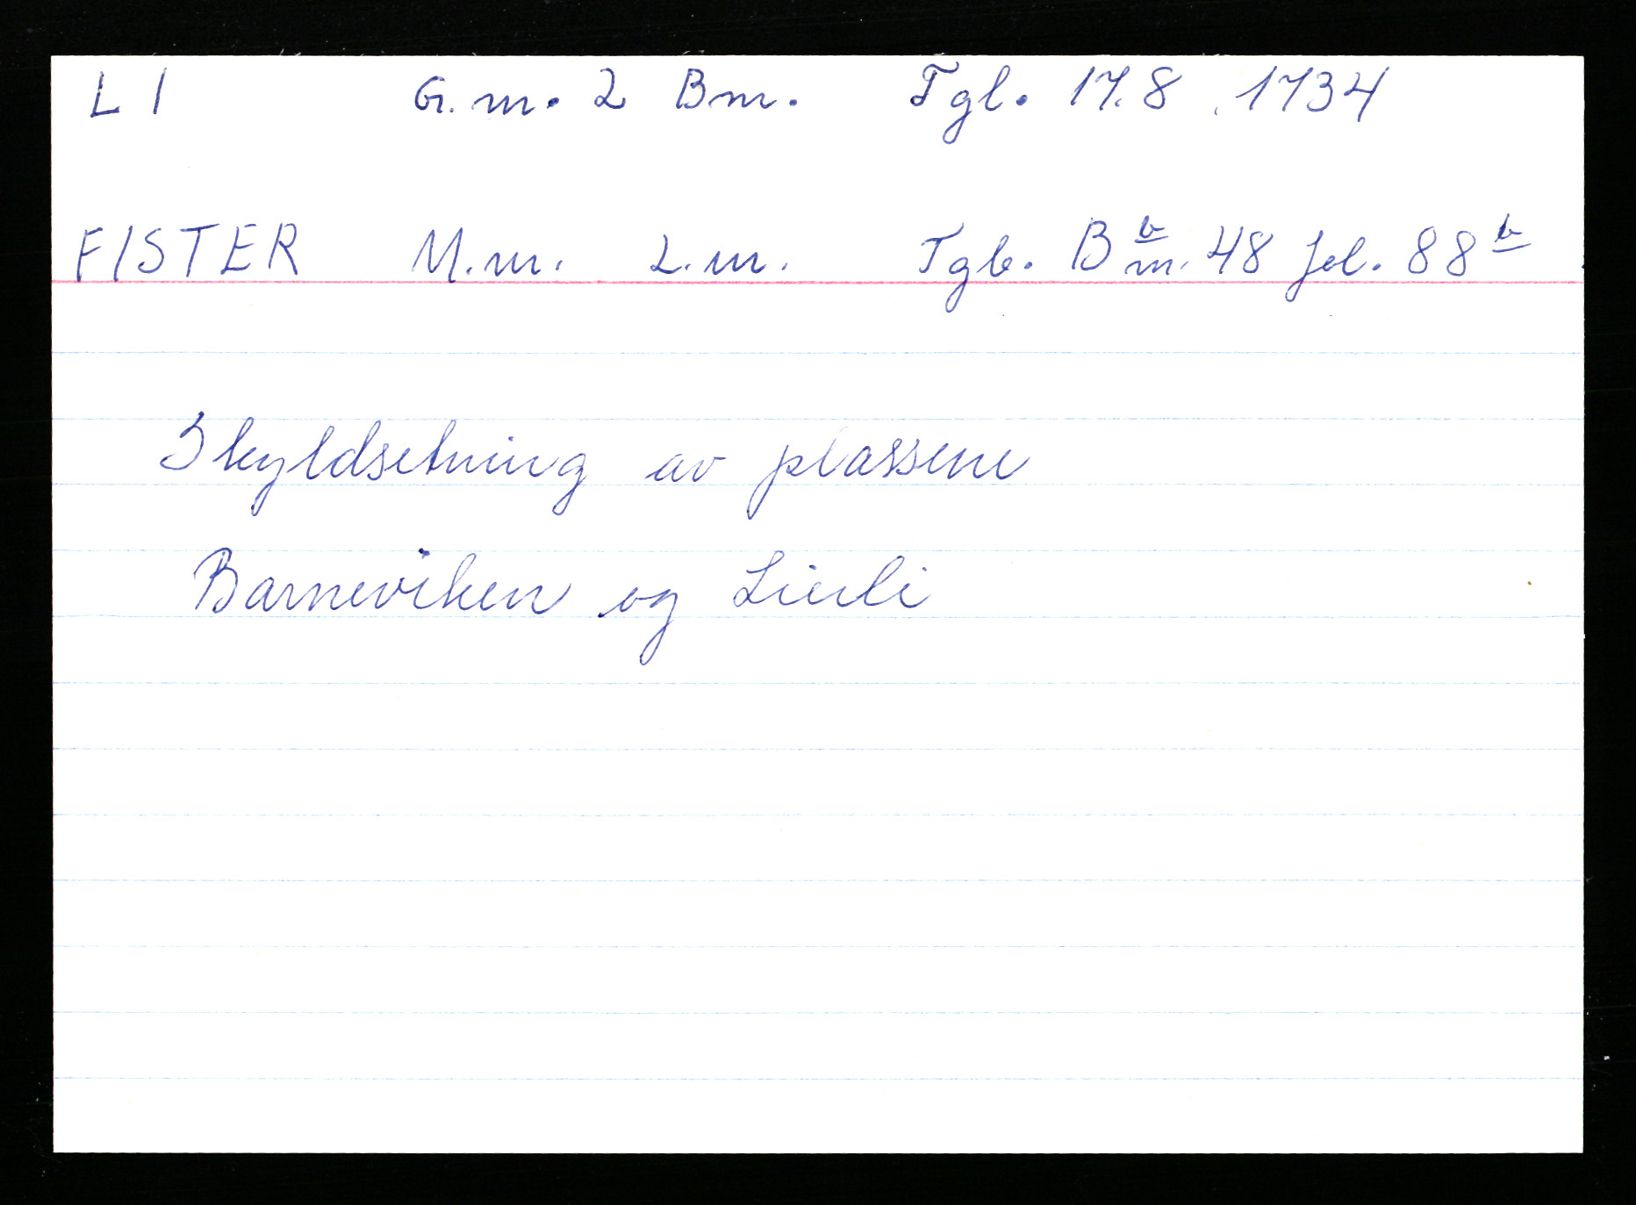 LI G.nr. 2 Bnr. Tgl. 17.8. 1734
FISTER M.nr. L.nr. Tgb. B b nr. 48 fol. 88 b
Skyldsetning av plassene
Barneviken og Lierli